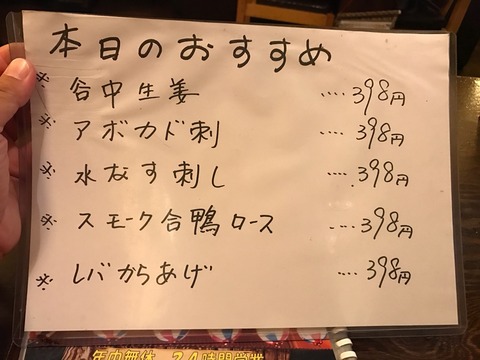 本日のおすすめ
※ 谷中生姜 ････ 398円
※ アボカド刺 ････ 398円
※ 水なす刺し ････ 398円
※ スモーク合鴨ロース ････ 398円
※ レバからあげ ････ 398円
年中無休 24時間営業